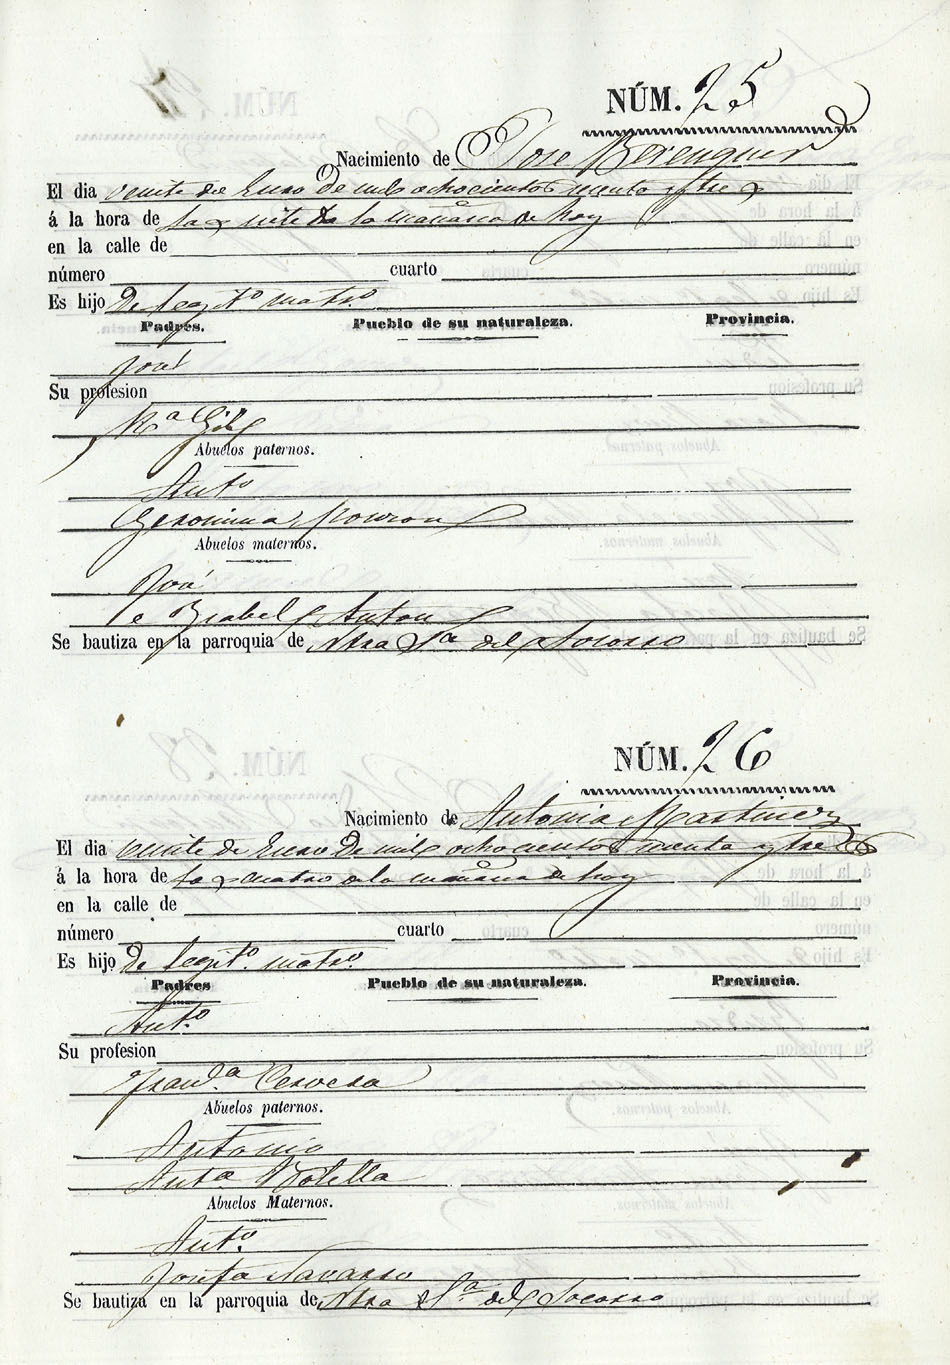 NÚM. 25
Nacimiento de Jose Berenguer
El dia veinte de Enero de mil ochocientos y tres
á la hora de las siete de la mañana de hoy
en la calle de
número cuarto
Es hijo de legit.º matr.º
Padres. Pueblo de su naturaleza. Provincia.
José
Su profesion
R.ª Gil
Abuelos paternos.
Ant.º
Geronima
Abuelos maternos.
José
e Ysabel Anton
Se bautiza en la parroquia de Ntra S.ª del Socorro
NÚM. 26
Nacimiento de Antonia Martinez
El dia veinte de Enero de mil ochocientos y tres
á la hora de las cuatro de la mañana de hoy
en la calle de
número cuarto
Es hijo de legit.º matr.º
Padres Pueblo de su naturaleza. Provincia.
Ant.º
Su profesion
Fran.ca Cervera
Abuelos paternos.
Antonio
Ant.a Botella
Abuelos Maternos.
Ant.º
Josefa Navarro
Se bautiza en la parroquia de Ntra S.ª del Socorro